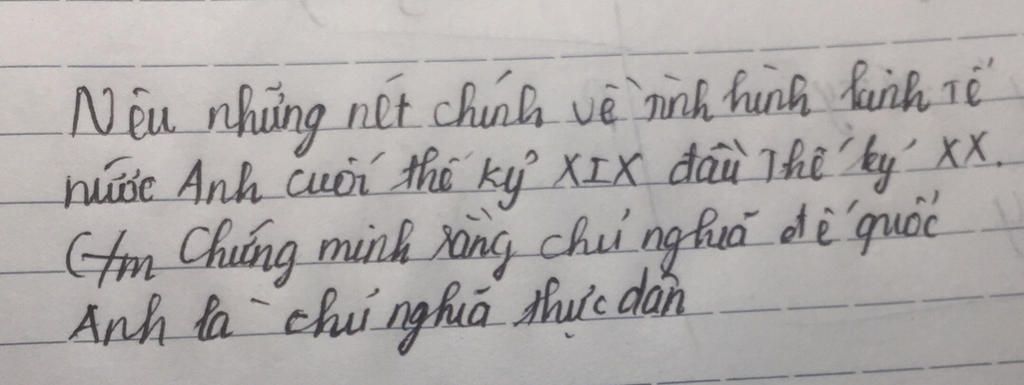 Nêu những nét chính về tình hình kinh tế
nước Anh cuối thế kỷ XIX đầu Thế kỷ XX.
C/m Chứng minh rằng chủ nghĩa đế quốc
Anh là chủ nghĩa thực dân